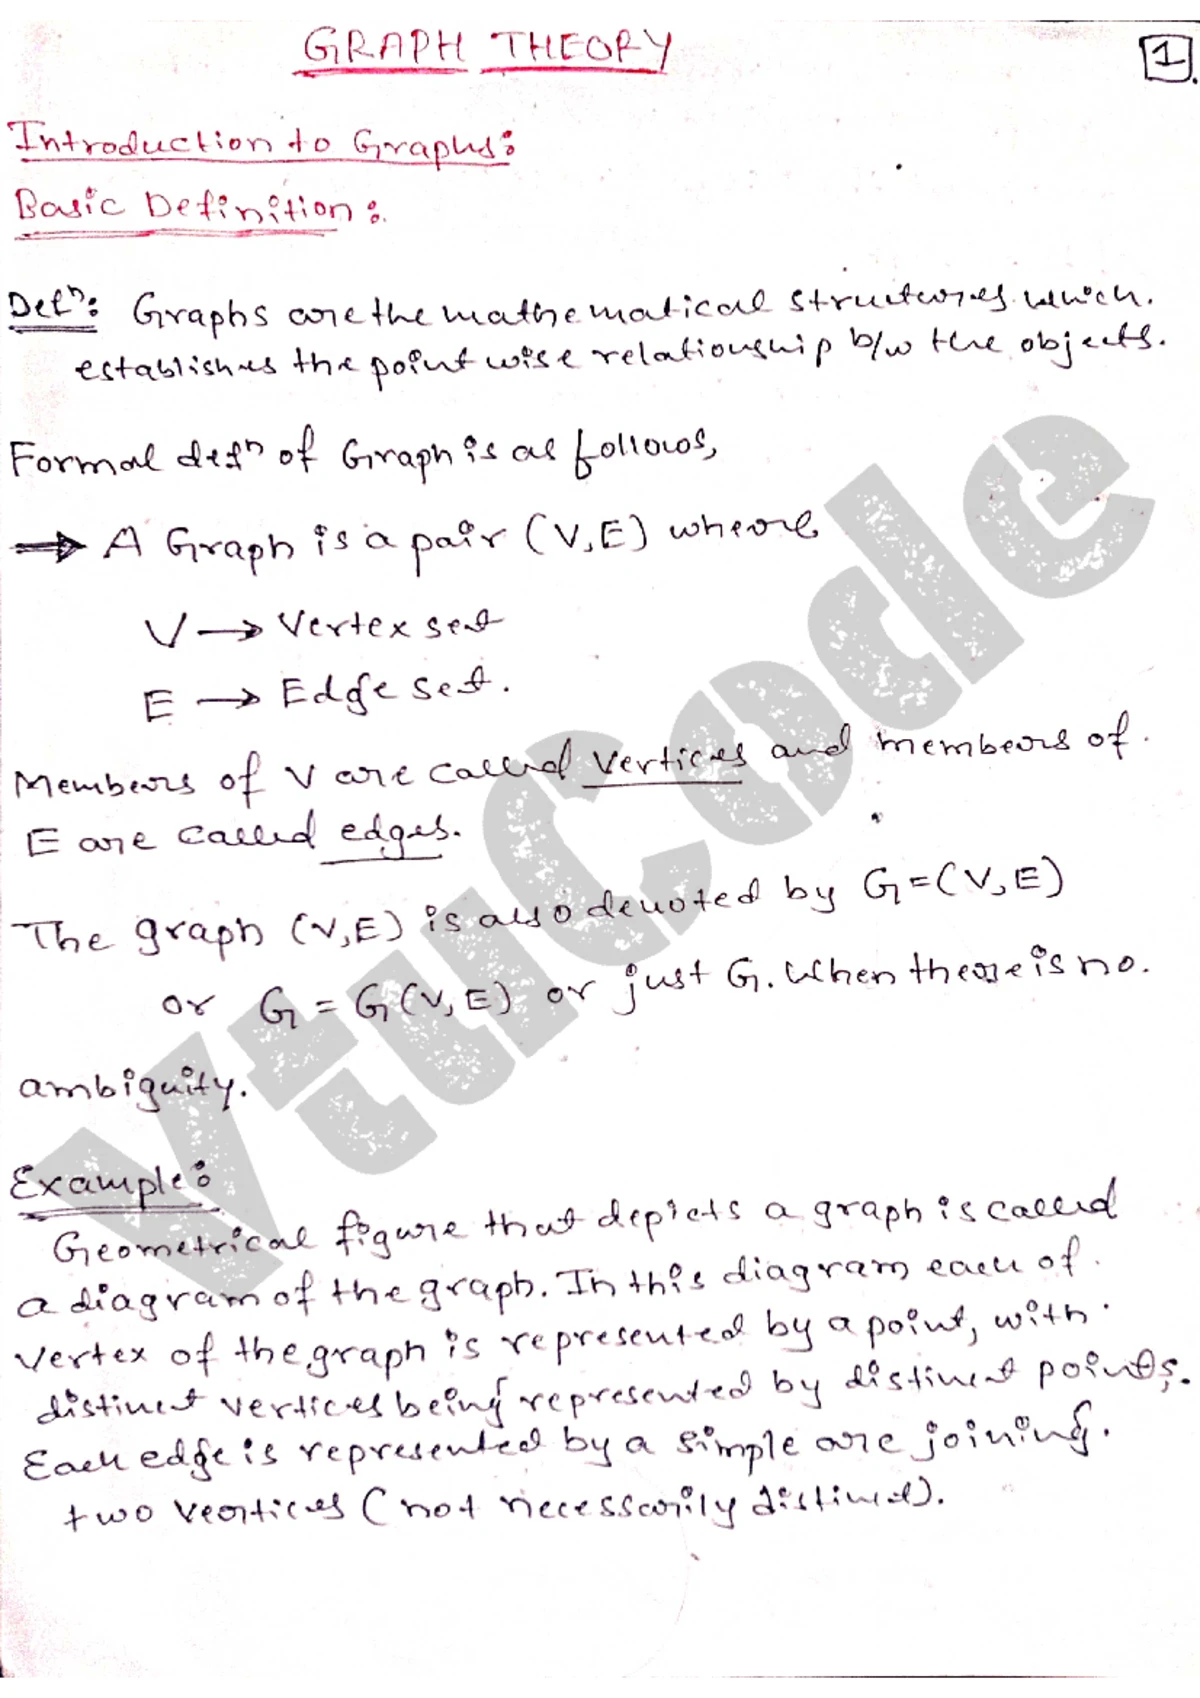 GRAPH THEORY
1.
Introduction to Graphs:
Basic Definition:
Defⁿ: Graphs are the mathematical structures which.
establishes the point wise relationship b/w the objects.
Formal defⁿ of Graph is as follows,
⇒ A Graph is a pair (V,E) where
V → Vertex set
E → Edge set.
Members of V are called vertices and members of.
E are called edges.
The graph (V,E) is also denoted by G=(V,E)
or G = G(V,E) or just G. When there is no.
ambiguity.
Example:
Geometrical figure that depicts a graph is called
a diagram of the graph. In this diagram each of.
vertex of the graph is represented by a point, with
distinct vertices being represented by distinct points;.
Each edge is represented by a simple arc joining.
two vertices (not necessarily distinct).
VtuCode